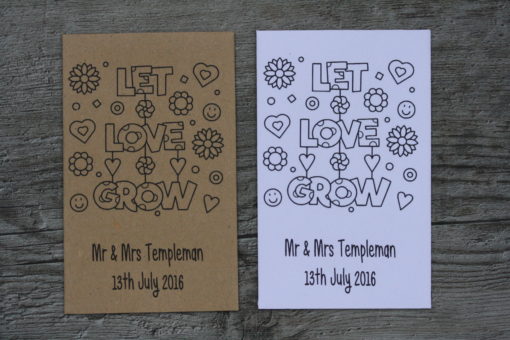 LET
LOVE
GROW
Mr & Mrs Templeman
13th July 2016
LET
LOVE
GROW
Mr & Mrs Templeman
13th July 2016